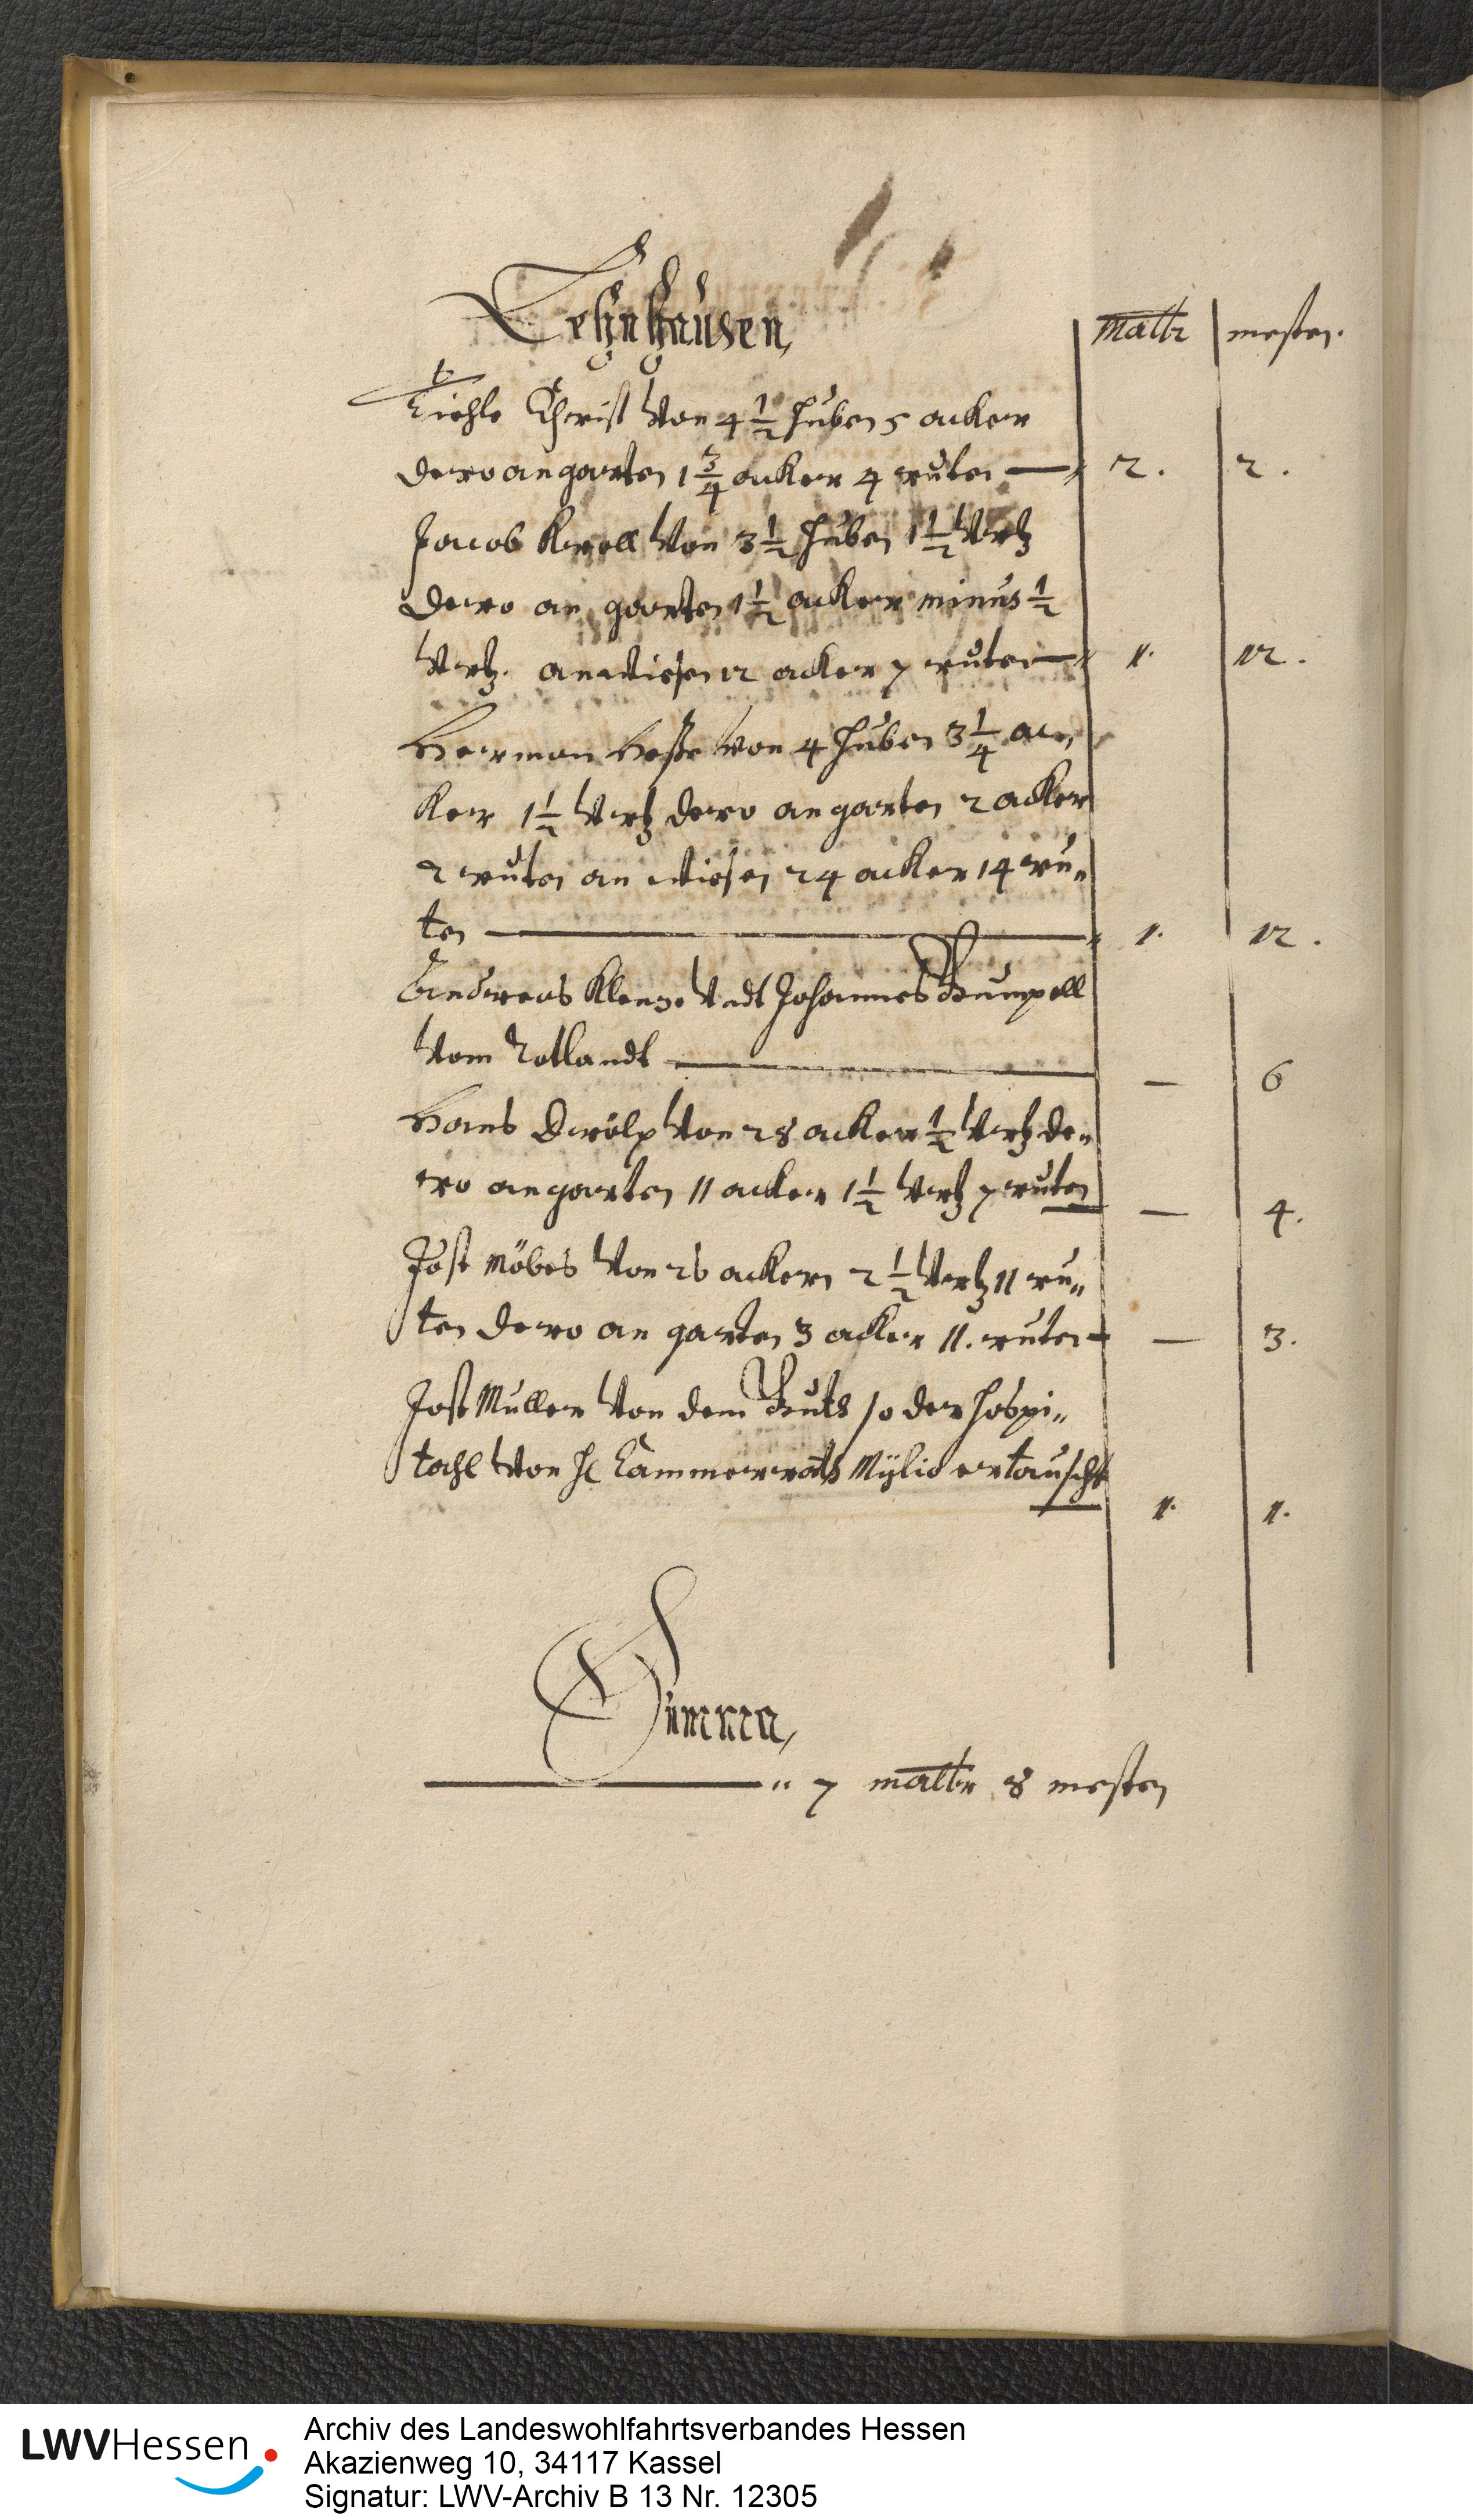 Lehnhausen,
maltr mesten.
Tiehle Christ von 4 1/2 huben 5 acker
dero an garten 1 3/4 acker 4 ruten — 2. 2.
Jacob Krell von 3 1/2 huben 1 1/2 vrtz
dero an garten 1 1/2 acker minus 1/2
vrtz. an wiesen 12 acker 7 ruten — 1. 12.
Herman Hesse von 4 huben 3 1/4 ac„
ker 1 1/2 vrtz dero an garten 2 acker
2 ruten an wiesen 24 acker 14 ru„
ten — 1. 12.
Andreas Klenge vndt Johannes Rumpell
vom Rotlandt — — 6
Hans Drölp von 28 acker 1/2 vrtz de„
ro an garten 11 acker 1 1/2 vrtz 7 ruten — 4.
Jost Möbes von 26 ackern 2 1/2 vrtz 11 ru„
ten dero an garten 3 acker 11. ruten — — 3.
Jost Muller von dem Guth so der hospi„
tahl von H Cammerraths Mylio ertauscht
1. 1.
Summa,
— „ 7 maltr 8 mesten
LWVHessen
Archiv des Landeswohlfahrtsverbandes Hessen
Akazienweg 10, 34117 Kassel
Signatur: LWV-Archiv B 13 Nr. 12305